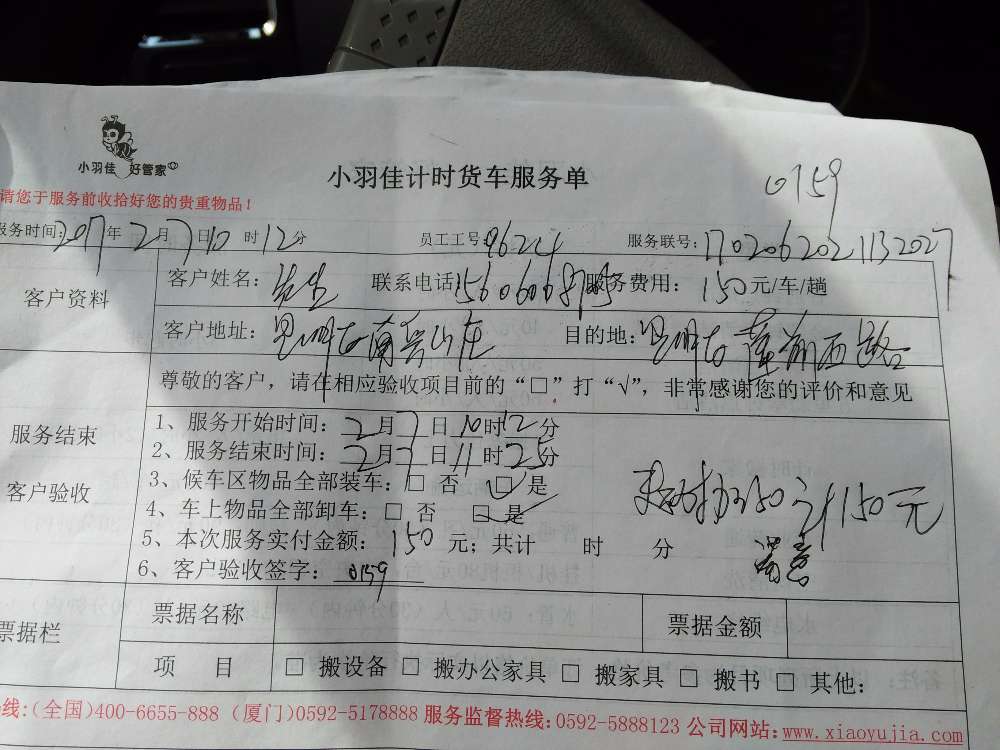 小羽佳 好管家
小羽佳计时货车服务单
0159
请您于服务前收拾好您的贵重物品！
服务时间：2017年2月7日10时12分 员工工号：9624 服务联号：1702062021132027
客户资料
客户姓名：先生 联系电话： 服务费用：150元/车/趟
客户地址：思明区南 山庄 目的地：思明区莲前西路
尊敬的客户，请在相应验收项目前的“□”打“√”，非常感谢您的评价和意见
服务结束
客户验收
1、服务开始时间：2月7日10时12分
2、服务结束时间：2月7日11时25分
3、候车区物品全部装车：□ 否 ☑是
4、车上物品全部卸车：□ 否 ☑是
5、本次服务实付金额：150元；共计 时 分
6、客户验收签字：0159
150元
满意
票据栏
票据名称 票据金额
项 目 □ 搬设备 □ 搬办公家具 □ 搬家具 □ 搬书 □ 其他：
线:(全国)400-6655-888 (厦门)0592-5178888 服务监督热线:0592-5888123 公司网站:www.xiaoyujia.com